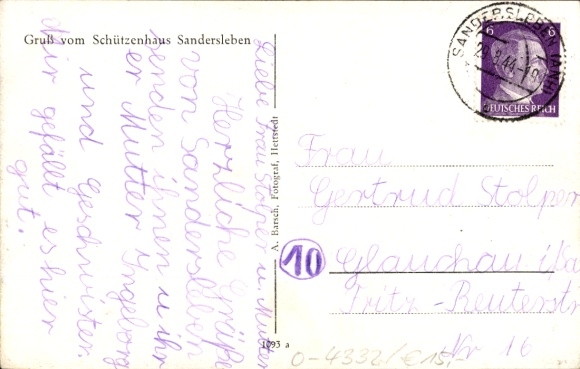 Gruß vom Schützenhaus Sandersleben
Liebe Frau Stolper u. Mutter
Herzliche Grüße
von Sandersleben
senden ihnen u ihr
er Mutter Ingeborg
und Geschwister.
Mir gefällt es hier
gut!
A. Barsch, Fotograf, Hettstedt
1093 a
SANDERSLEBEN (ANH)
6 6
DEUTSCHES REICH
Frau
Gertrud Stolper
10
Glauchau i/Sa
Fritz-Reuterstr
Nr 16
0-4332/€15,-